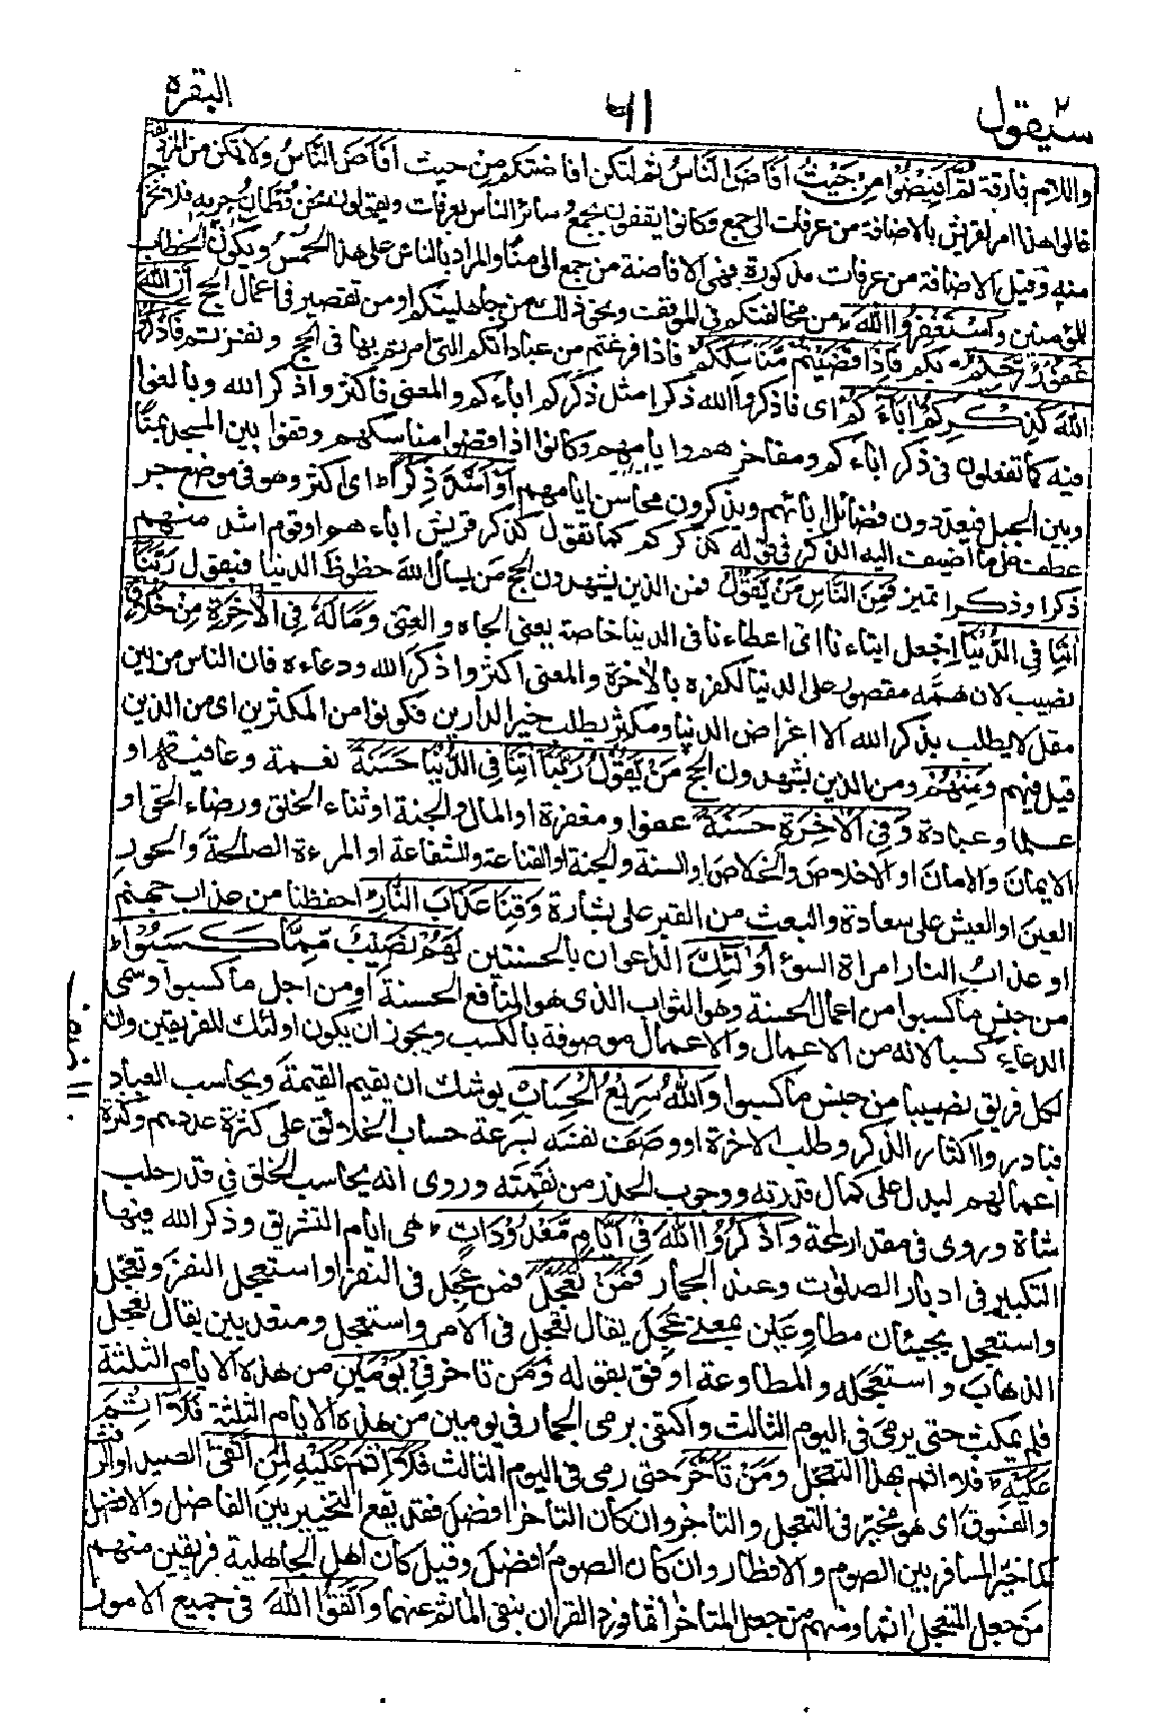 سيقول ٢
٦١
البقرة
واللام فارقة ثُمَّ أَفِيْضُوْا مِنْ حَيْثُ أَفَاضَ النَّاسُ ثم لتكن افاضتكم من حيث أفاض الناس ولا تكن من المزدلفة
قالوا هذا امر لقريش بالاضافة من عرفات الى جمع وكانوا يقفون بجمع وسائر الناس بعرفات ويقولون نحن قطان حرمه فلا نخرج
منه وقيل الافاضة من عرفات مذكورة فهى الافاضة من جمع الى منًا والمراد بالناس على هذا الحمس ويكون الخطاب
للمؤمنين وَاسْتَغْفِرُوا اللهَ من مخالفتكم فى الموقف ونحو ذلك من جاهليتكم او من تقصير فى اعمال الحج اَنَّ اللهَ
غَفُوْرٌ رَّحِيْمٌ بكم فَاِذَا قَضَيْتُمْ مَّنَاسِكَكُمْ فاذا فرغتم من عباداتكم التى امرتم بها فى الحج ونفرتم فَاذْكُرُوا
اللهَ كَذِكْرِكُمْ اٰبَآءَكُمْ اى فاذكروا الله ذكرا مثل ذكركم اباءكم والمعنى فأكثروا ذكر الله وبالغوا
فيه كما تفعلون فى ذكر اباءكم ومفاخرهم وايامهم وكانوا اذا قضوا مناسكهم وقفوا بين المسجد بمِنًا
وبين الجبل فيعددون فضائل ابائهم ويذكرون محاسن ايامهم اَوْ اَشَدَّ ذِكْرًا اى اكثر وهو فى موضع جر
عطف على ما اضيف اليه الذكر فى قوله كذكركم كما تقول كذكر قريش اباءهم او قوم اشد منهم
ذكرا وذكرا تميز فَمِنَ النَّاسِ مَنْ يَّقُوْلُ فمن الذين يشهدون الحج من يسأل الله حظوظ الدنيا فيقول رَبَّنَا
اٰتِنَا فِى الدُّنْيَا اجعل ايتاءنا اى اعطاءنا فى الدنيا خاصة يعنى الجاه والغنى وَمَا لَهٗ فِى الْاٰخِرَةِ مِنْ خَلَاقٍ
نصيب لان همّه مقصور على الدنيا لكفره بالاٰخرة والمعنى اكثروا ذكر الله ودعاءه فان الناس من بين
مقل لا يطلب بذكر الله الا اغراض الدنيا ومكثر يطلب خير الدارين فكونوا من المكثرين اى من الذين
قيل فيهم وَمِنْهُمْ ومن الذين يشهدون الحج مَنْ يَّقُوْلُ رَبَّنَا اٰتِنَا فِى الدُّنْيَا حَسَنَةً نعمة وعافية او
علما وعبادة وَّفِى الْاٰخِرَةِ حَسَنَةً عفوا ومغفرة او المال والجنة او ثناء الخلق ورضاء الحق او
الايمان والامان او الاخلاص والخلاص او السنة والجنة او القناعة والشفاعة او المرءة الصالحة والحور
العين او العيش على سعادة والبعث من القبر على بشارة وَّقِنَا عَذَابَ النَّارِ احفظنا من عذاب جهنم
او عذاب النار امراة السوء اُولٰئِكَ الداعوان بالحسنتين لَهُمْ نَصِيْبٌ مِّمَّا كَسَبُوْا
من جنس ما كسبوا من اعمال الحسنة وهو الثواب الذى هو المنافع الحسنة او من اجل ما كسبوا وسمى
الدعاء كسبا لانه من الاعمال والاعمال موصوفة بالكسب ويجوز ان يكون اولئك للفريقين وان
لكل فريق نصيبا من جنس ما كسبوا وَاللهُ سَرِيْعُ الْحِسَابِ يوشك ان يقيم القيمة ويحاسب العباد
فبادروا اكثار الذكر وطلب الاخرة او وصف نفسه بسرعة حساب الخلائق على كثرة عددهم وكثرة
اعمالهم ليدل على كمال قدرته ووجوب الحذر من نقمته وروى انه يحاسب الخلق فى قدر حلب
شاة وروى فى مقدار لمحة وَاذْكُرُوا اللهَ فِىْ اَيَّامٍ مَّعْدُوْدَاتٍ هى ايام التشريق وذكر الله فيها
التكبير فى ادبار الصلوٰت وعند الجمار فَمَنْ تَعَجَّلَ فمن عجل فى النفر او استعجل النفر وتعجل
واستعجل يجيئان مطاوعين بمعنى عجل يقال تعجل فى الامر واستعجل ومتعديين يقال تعجل
الذهاب واستعجله والمطاوعة اوفق بقوله ومن تاخر فِىْ يَوْمَيْنِ من هذه الايام الثلثة
فلم يمكث حتى يرمى فى اليوم الثالث واكتفى برمى الجمار فى يومين من هذه الايام الثلثة فَلَا اِثْمَ
عَلَيْهِ فلا اثم بهذا التعجل وَمَنْ تَاَخَّرَ حتى رمى فى اليوم الثالث فَلَا اِثْمَ عَلَيْهِ لِمَنِ اتَّقٰى الصيد او الرفث
والفسوق اى هو مخير فى التعجل والتأخر وان كان التأخر افضل فقد يقع التخيير بين الفاضل والافضل
كما خير المسافر بين الصوم والافطار وان كان الصوم افضل وقيل كان اهل الجاهلية فريقين منهم
من جعل المتعجل اثما ومنهم من جعل المتاخر اثما فورد القران بنفى الماثم عنهما وَاتَّقُوا اللهَ فى جميع الامور